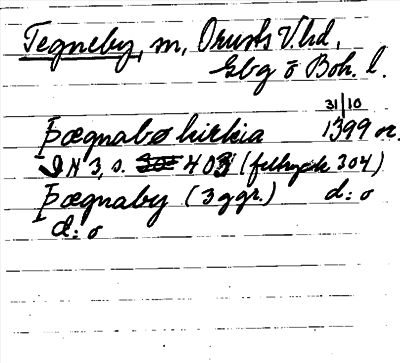 Tegneby, sn, Orusts V. hd,
Gbg o Boh. l.
31/10
Þægnabø kirkia 1399 or.
DN 3, s. 403 (feltryck 304)
Þægnaby (3 ggr.) d:o
d:o